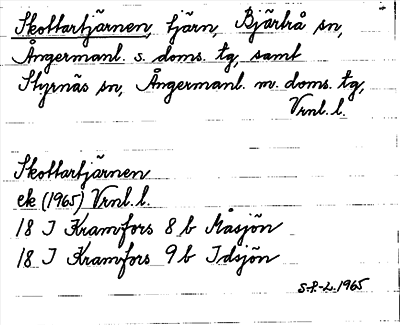 Skottartjärnen, tjärn, Bjärtrå sn,
Ångermanl. s. doms. tg, samt
Styrnäs sn, Ångermanl. m. doms. tg,
Vrnl. l.
Skottartjärnen
ek (1965) Vrnl. l.
18 I Kramfors 8 b Måsjön
18 I Kramfors 9 b Idsjön
1965